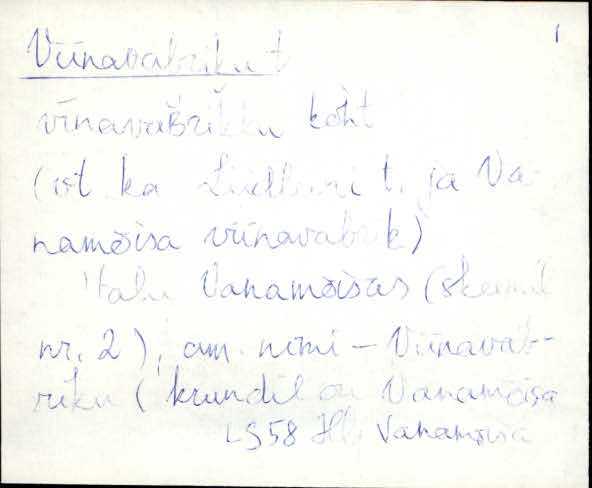 1
Viinavabriku t
vīnavaʙ̀rikku kòht
(vt ka t. ja Va-
namõisa viinavabrik)
Talu Vanamõisas (skeemil
nr. 2), am. nimi – Viinavab-
riku (krundil on Vanamõisa
LS58 Hls Vanamõisa